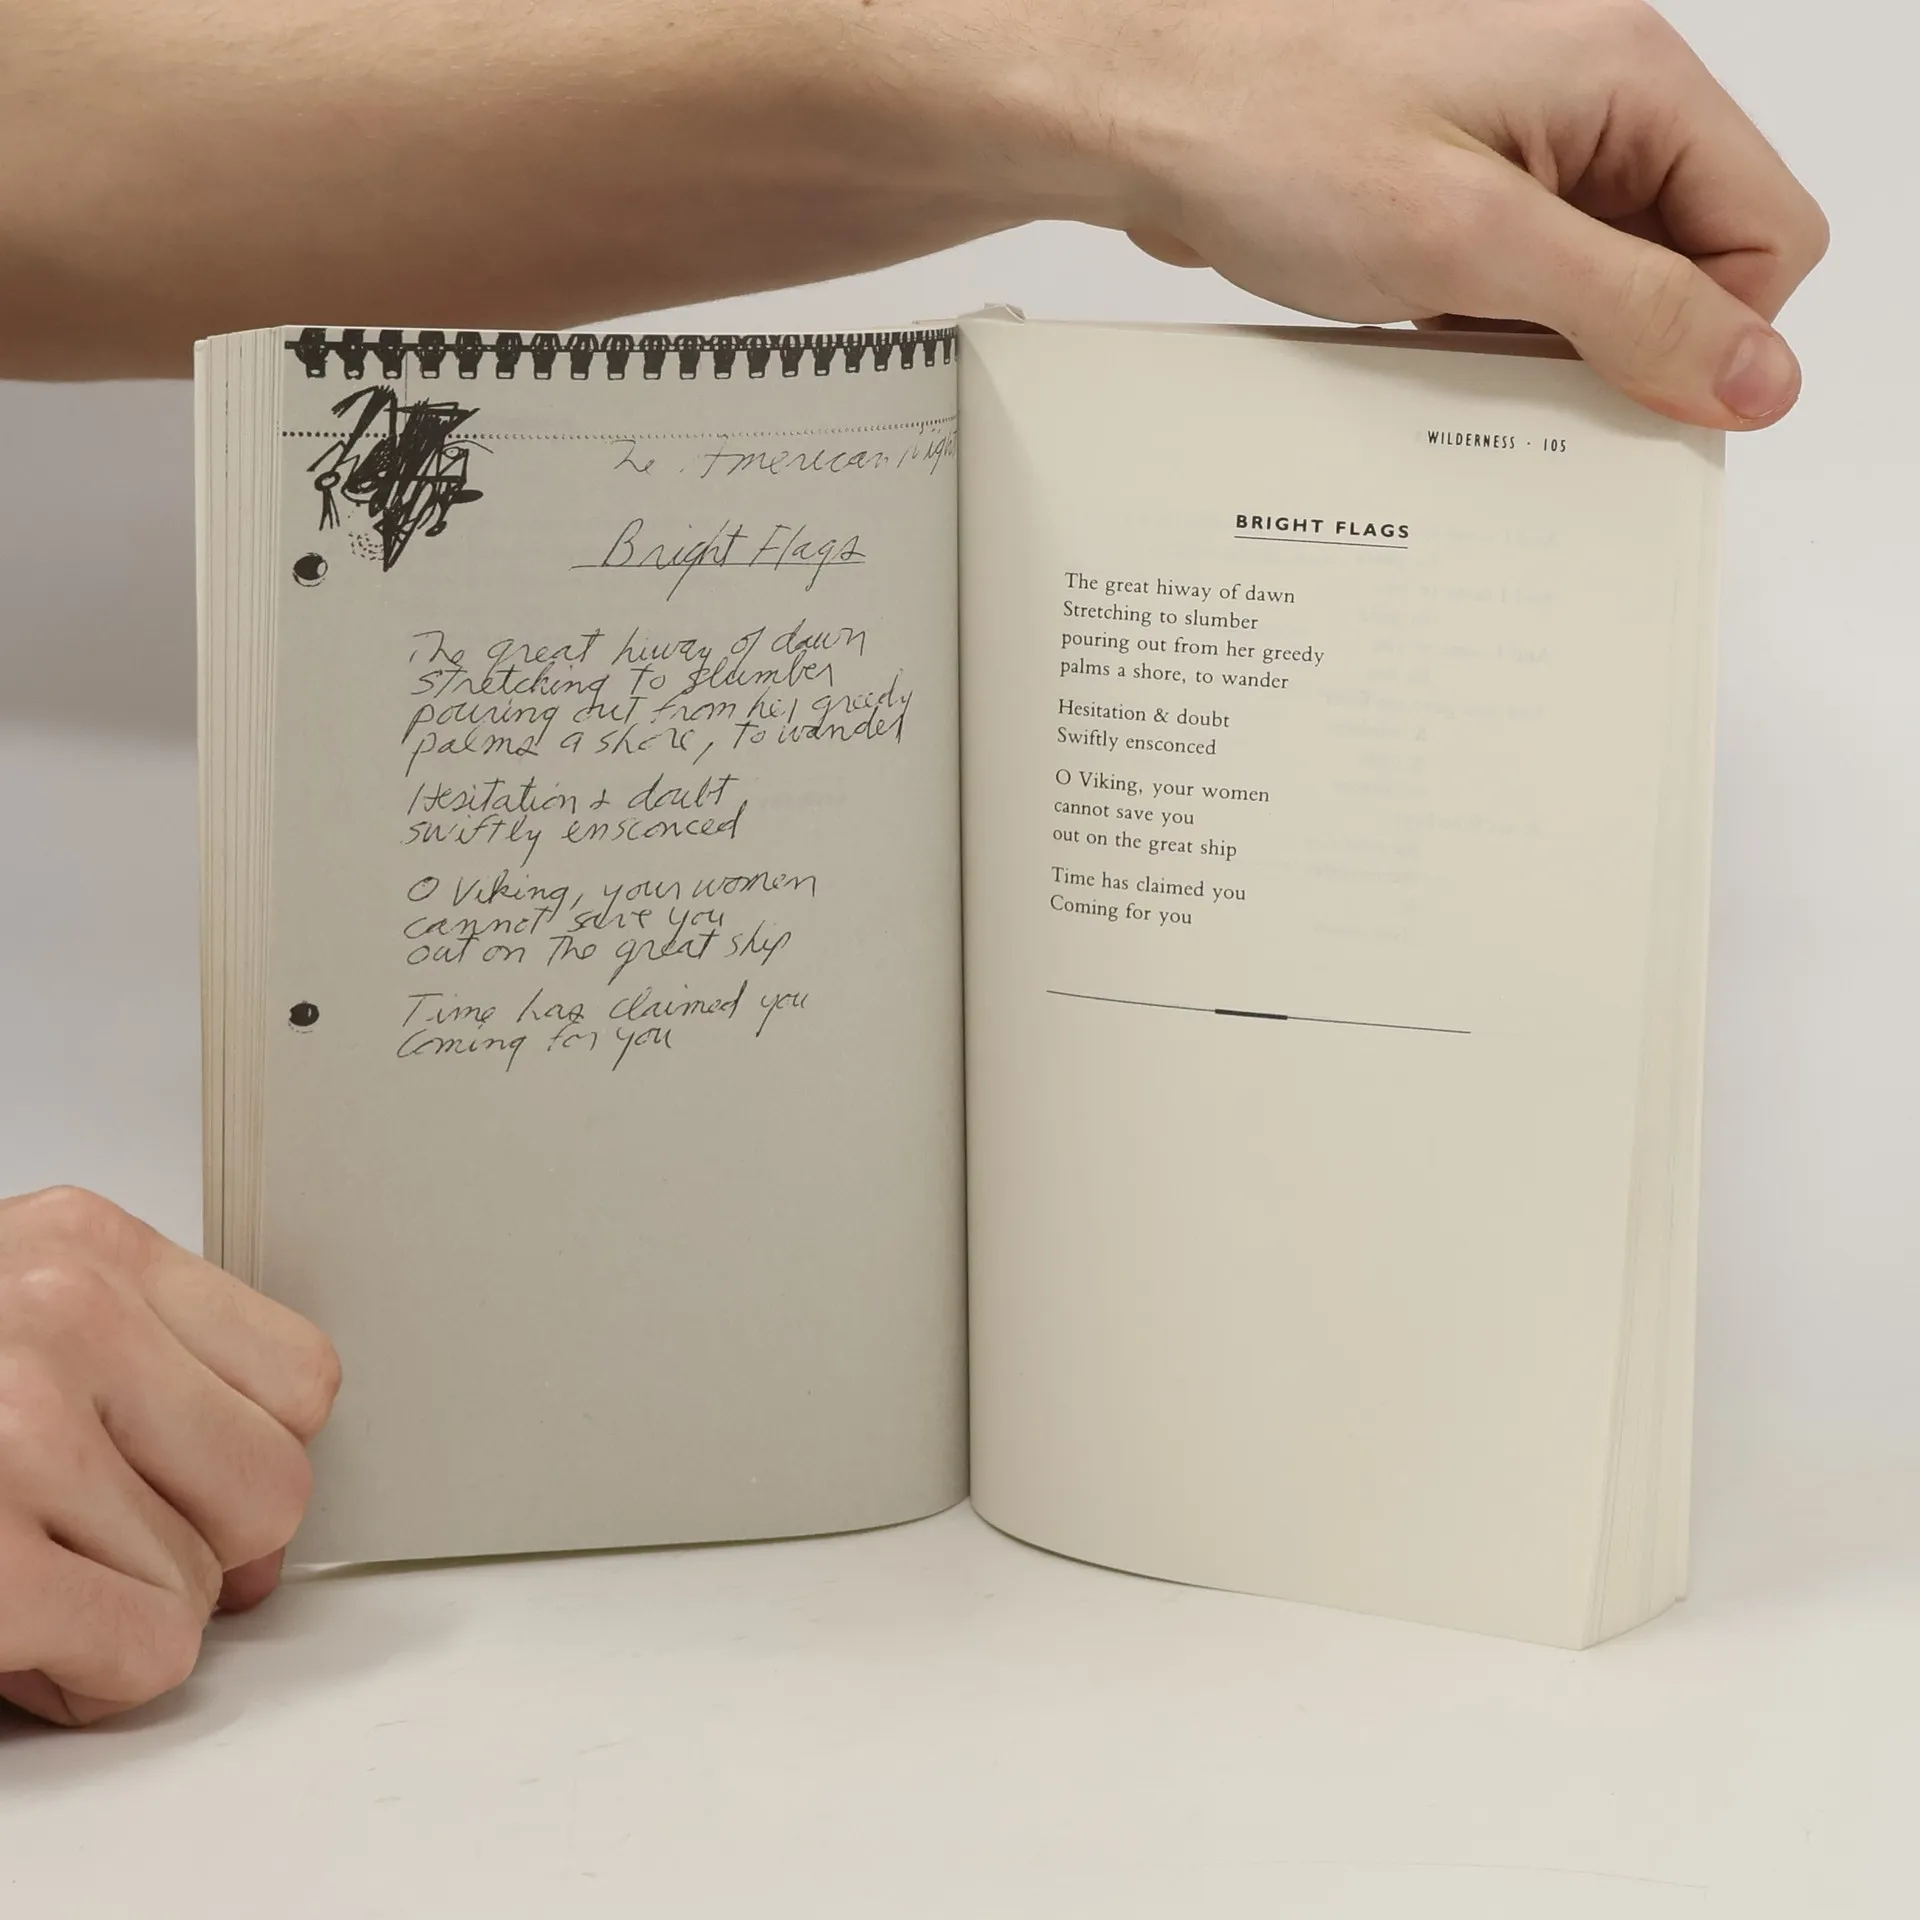 The American Night
Bright Flags
The great hiway of dawn
stretching to slumber
pouring out from her greedy
palms a shore, to wander
Hesitation & doubt
swiftly ensconced
O Viking, your women
cannot save you
out on the great ship
Time has claimed you
Coming for you
WILDERNESS · 105
BRIGHT FLAGS
The great hiway of dawn
Stretching to slumber
pouring out from her greedy
palms a shore, to wander
Hesitation & doubt
Swiftly ensconced
O Viking, your women
cannot save you
out on the great ship
Time has claimed you
Coming for you